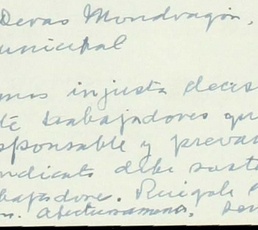 Devas Mondragón,
unicipal
mos injusta decis
te trabajadores qu
sponsable y preva
ndicato debe soste
bajadore. Ruégole
Atentamente,